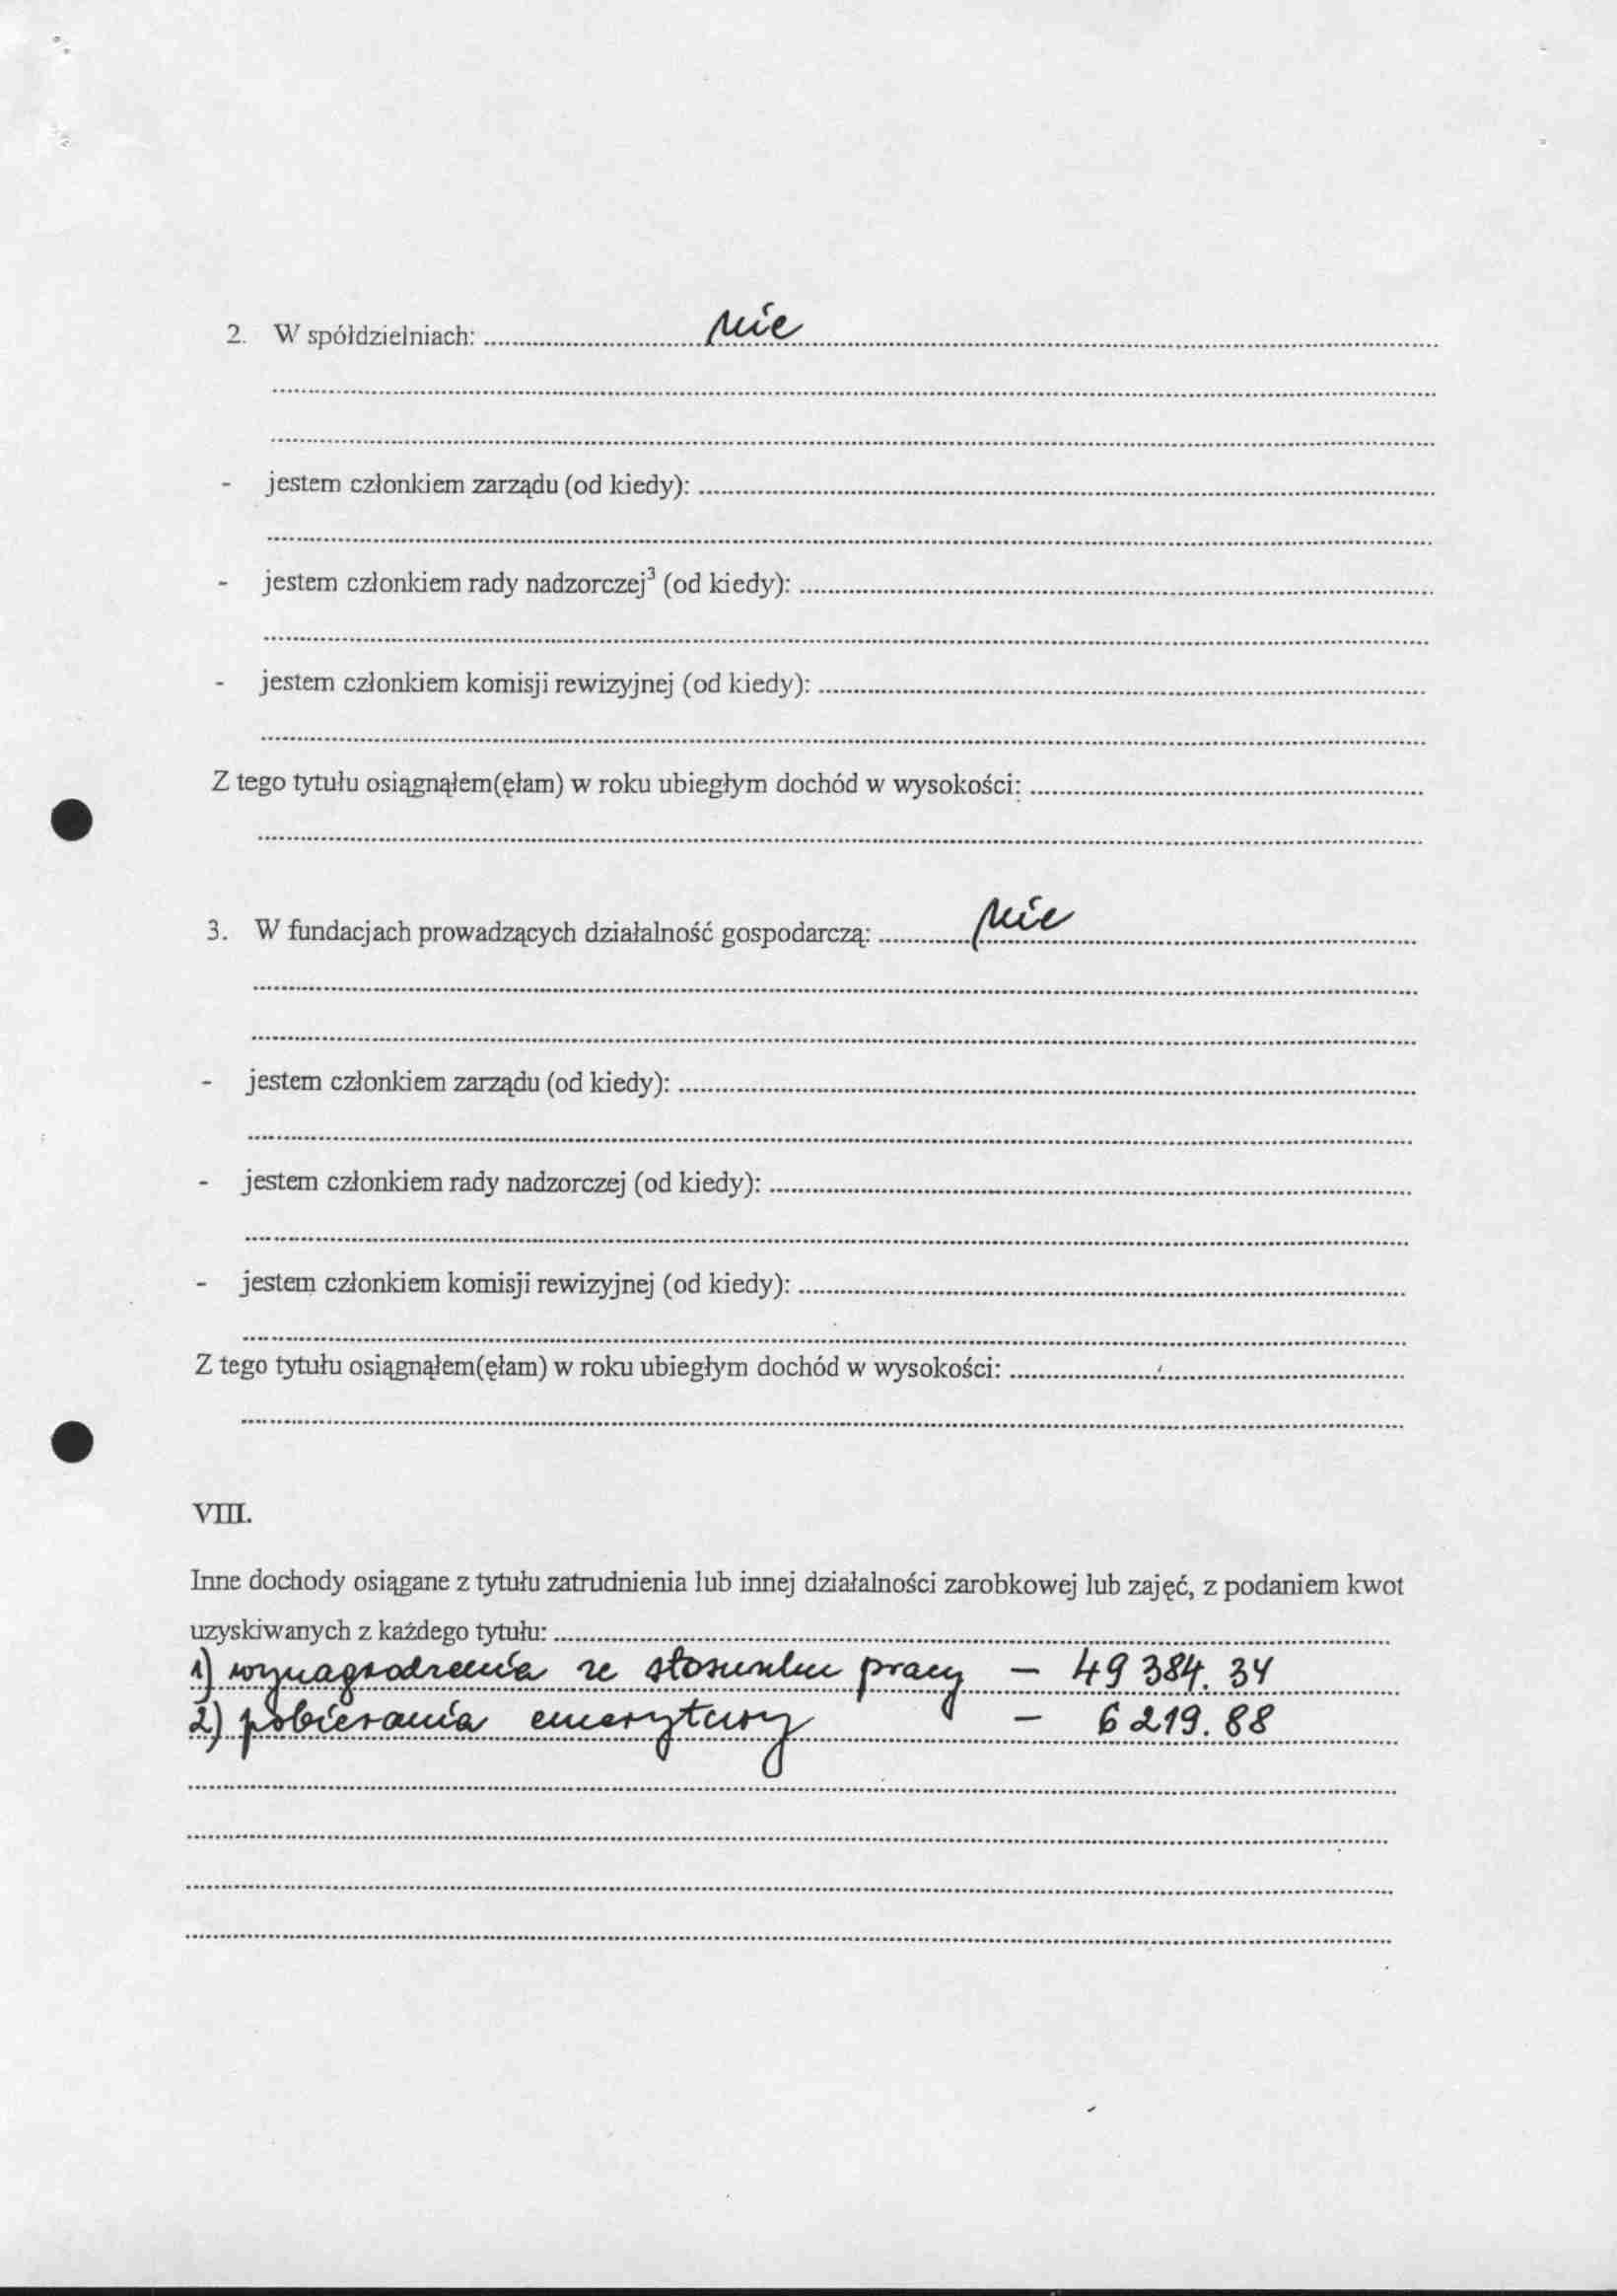 2. W spółdzielniach: nie
- jestem członkiem zarządu (od kiedy):
- jestem członkiem rady nadzorczej³ (od kiedy):
- jestem członkiem komisji rewizyjnej (od kiedy):
Z tego tytułu osiągnąłem(ęłam) w roku ubiegłym dochód w wysokości:
3. W fundacjach prowadzących działalność gospodarczą: nie
- jestem członkiem zarządu (od kiedy):
- jestem członkiem rady nadzorczej (od kiedy):
- jestem członkiem komisji rewizyjnej (od kiedy):
Z tego tytułu osiągnąłem(ęłam) w roku ubiegłym dochód w wysokości:
VIII.
Inne dochody osiągane z tytułu zatrudnienia lub innej działalności zarobkowej lub zajęć, z podaniem kwot
uzyskiwanych z każdego tytułu:
1) wynagrodzenia ze stosunku pracy – 49 384. 34
2) pobierania emerytury – 6 219. 88